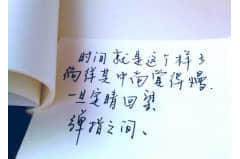 时间就是这个样子
徜徉其中尚觉得慢,
一旦定睛回望
弹指之间、